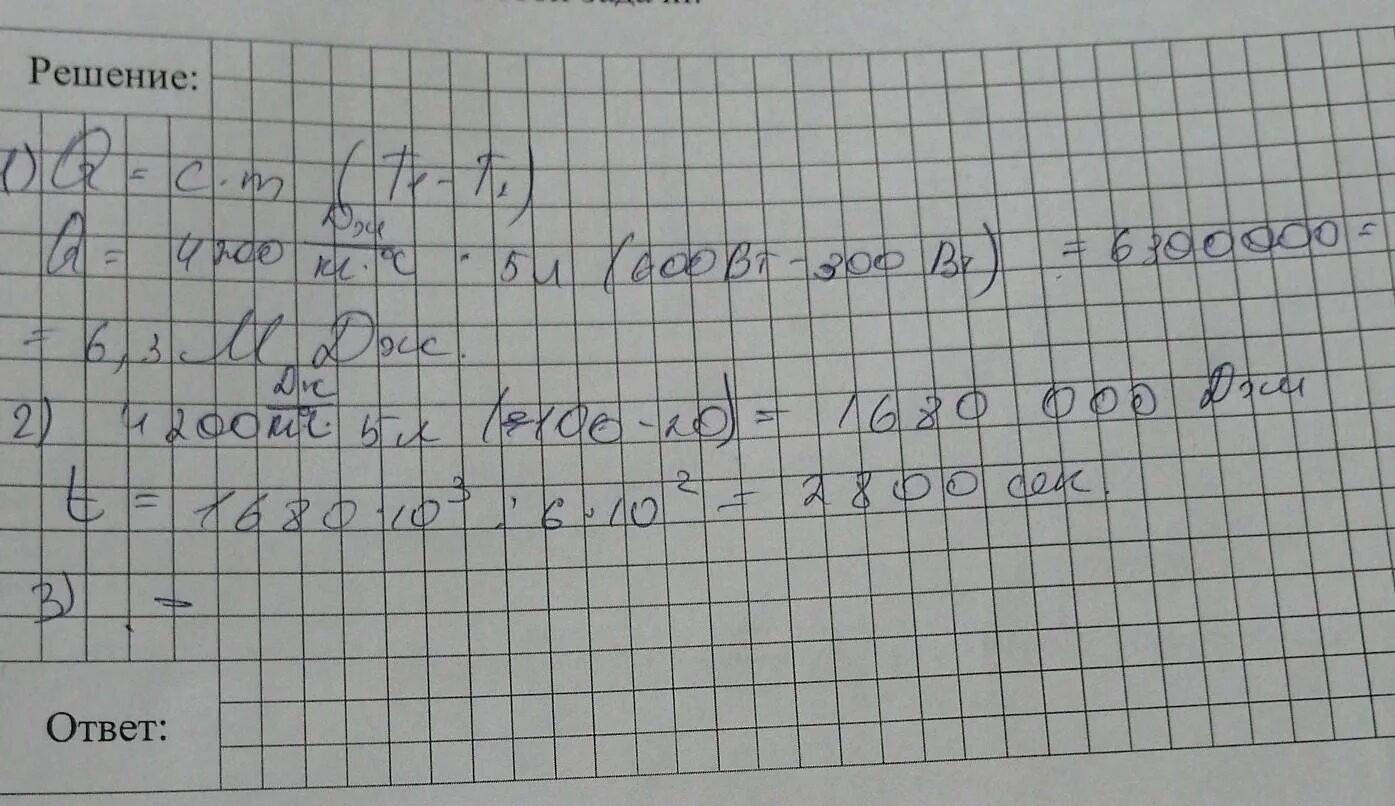 Решение:
1) Q = c·m (T₁ - T₂)
Q = 4200 Дж/кг·°C · 5л (600Вт - 300 Вт) = 6300000 =
= 6,3 М Дж.
2) 4200 Дж/кг·°C 5л (100 - 20) = 1680 000 Дж
t = 1680·10³ : 6·10² = 2800 сек.
3)
Ответ: